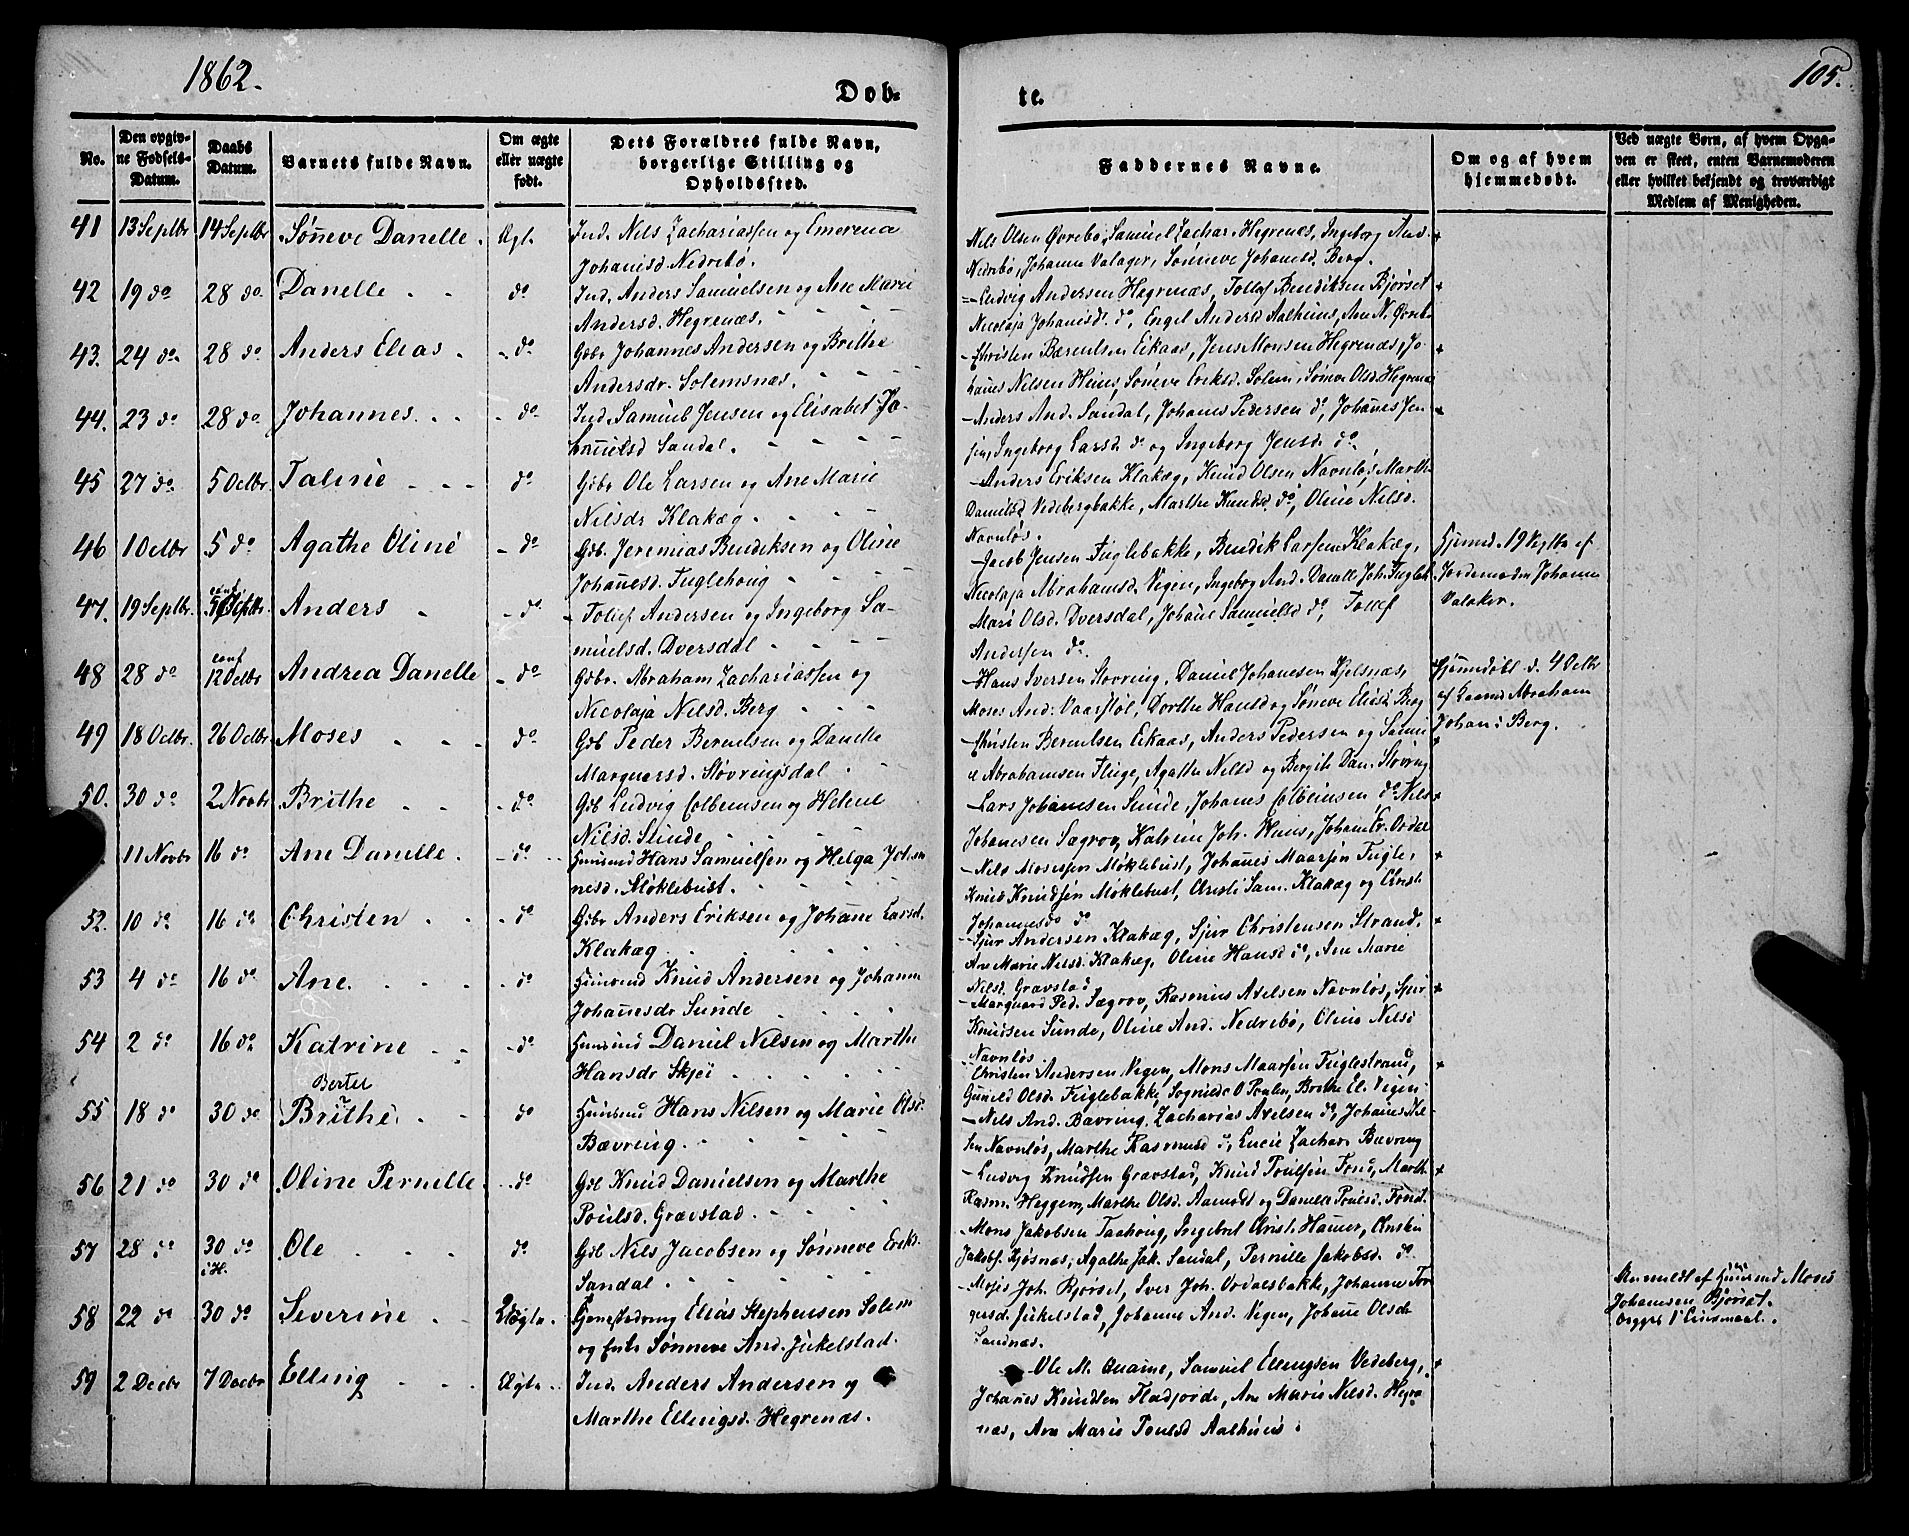 1862.
Døb-
te.
105.
No.
Den opgiv-
ne Fødsels-
Datum.
Daabs
Datum.
Barnets fulde Navn.
Om ægte
eller uægte
født.
Dets Forældres fulde Navn,
borgerlige Stilling og
Opholdssted.
Faddernes Navne.
Om og af hvem
hjemmedøbt.
Ved uægte Børn, af hvem Opga-
ven er skeet, enten Barnemoderen
eller hvilket bekjendt og troværdigt
Medlem af Menigheden.
41 13 Septbr 14 Septbr Sønneve Danelle. Ægt. Ind. Nils Zachariassen og Emerena
Johanisd Nedrebø.
Nils Olsen Øvrebø, Samuel Zachar. Hegrenæs, Ingeborg And.
Nedrebø, Johanne Valager, Sønneve Johanesd. Berg.
42 19 do 28 do. Danelle do Ind. Anders Samuelsen og Ane Marie
Andersd. Hegrenæs.
Ludvig Andersen Hegrenæs, Tollef Bendiksen Bjørset
Nicolaja Johanisd. do, Engel Andersd Aalhuus, Ane N. Øvreb.
43. 24 do 28 do Anders Elias. do Gbr Johannes Andersen og Brithe
Andersdr. Solemsnæs.
Christen Bærentsen Eikaas, Jens Monsen Hegrenæs, Jo-
hanes Nilsen Huus, Søneve Eriksd. Solem, Søneve Olsd. Hegrenæ
44. 23 do 28 do Johannes. do Ind. Samuel Jensen og Elisabet Jo-
hanisd Sandal.
Anders And. Sandal, Johanes Pedersen do, Johanes Jen-
sen, Ingeborg Larsd. do og Ingeborg Jensd. do
45 27 do 5 Octbr. Taline do Gbr Ole Larsen og Ane Marie
Nilsdr Klakæg.
Anders Eriksen Klakæg, Knud Olsen Navnløs, Marth
Danielsd Vedebergbakke, Marthe Knudsd do, Oline Nilsd.
Navnløs.
46 1 Octbr 5 do Agathe Oline do Gb. Jeremias Bendiksen og Oline
Johanesd. Fuglehoug
Jacob Jensen Fuglebakke, Bendik Larsen Klakæg,
Nicolaja Abrahamsd. Vigen, Ingeborg And. Danelle Joh. Fugleb.
Hjemmed. 19 Septbr af
Jordemoder Johanne
Valaker.
47. 19 Septbr. 5 Octbr. Anders do. Tollef Andersen og Ingeborg Sa-
muelsd. Dversdal
Mari Olsd. Dversdal, Johane Samuelsd do, Tollef
Andersen do.
48 28 do conf 12 Octbr Andrea Danelle do Gbr. Abraham Zachariassen og
Nicolaja Nilsd. Berg
Hans Iversen Støvring, Daniel Johanesen Kjelsnæs,
Moses And. Vaarstøl, Dorthe Hansd og Søneve Eliesd. Berg
Hjemmedøbt d. 4 Octbr
af Abraham
Johan: Berg.
49 18 Octbr. 26 Octbr. Moses do Gb Peder Berentsen og Danelle
Marquarsd. Støvringsdal
Christen Berentsen Eikaas, Anders Pedersen og Samu
el Abrahamsen Fluge, Agathe Nilsd og Bergite Dan. Støvring
50. 30 do 2 Novbr Brithe do Gb Ludvig Colbensen og Helene
Nilsd. Sunde
Lars Johanesen Sunde, Johanes Colbeinsen do Nils
Johanesen Sægrov, Katrine Joh. Huus, Johane Er. Ordal
11 Novbr 16 do Ane Danelle. do Huusmd Hans Samuelsen og Helga Johan
nesd. Møklebust.
Nils Mosessen Møklebust, Johanes Maarsøn Fugle,
Knud Knudsen Møklebust, Christi Sam. Klakæg og Christi
Johannesd do
52. 10 do 16 do Christen do Gbr Anders Eriksen og Johane Larsd.
Klakæg
Sjur Andersen Klakæg, Sjur Christensen Strand.
Ane Marie Nilsd. Klakæg, Oline Hansd do, Ane Marie
Nilsd. Gravstad
53 4 do 16 do Ane. do Huusmd Knud Andersen og Johanne
Johanesdr Sunde
Marquard Ped. Sægrov, Rasmus Axelsen Navnløs, Sjur
Knudsen Sunde, Oline And. Nedrebø, Oline Nilsd
Navnløs
54 2 do 16 do Katrine do Huusmd Daniel Nilsen og Marthe
Hansdr Skjei
Christen Andersen Vigen, Mons Maarsøn Fuglestrand,
Gunild Olsd. Fuglebakke, Sognilde O Poulen, Brithe El. Vigen
Bertel
55 18 do 30 do Brithe. do Huusmd Hans Nilsen og Marie Olsd.
Bævring
Nils And. Bævring, Zacharias Axelsen do, Johanes Nil-
sen Navnløs, Marthe Rasmusd do, Lucie Zachar. Bævring
56 21 do 30 do Oline Pernille do Gbl Knud Danielsen og Marthe
Poulsd. Gravstad
Ludvig Knudsen Gravstad, Knud Poulsen Fond, Marth
Rasm. Heggem, Marthe Olsd. Aamodt og Danela Poulsd. Fond.
57 28 do 30 do i H. Ole do Gbl Nils Jacobsen og Sønneve Eriks.
Sandal
Mons Jakobsen Taahoug, Ingebret Christ. Hauer, Christen
Jakobs. Kjøsnæs, Agathe Jak. Sandal, Pernille Jakobsd. do
58 22 do 30 do Severine Uægte. Tjenestedreng Elias Stephensen Solem
og Enke Sønneve And. Jukelstad.
Moses Joh. Bjørset, Iver Joh. Ordalsbakke, Johanne Tor
gersd. Jukelstad, Johanne And. Vigen, Johane Olsdr
Sandnæs.
Anmeldt af Huusmd Moses
Johanesen Bjørset.
begges 1 Leiermaal.
59 2 Decbr 7 Decbr Elling Ægte. Ind. Anders Andersen og
Marthe Ellingsd. Hegrenæs.
Ole M. Quame, Samuel Ellingsen Vedeberg,
Johanes Knudsen Fladjorde, Ane Marie Nilsd. Hegre
næs, Ane Marie Poulsd Aalhuus.